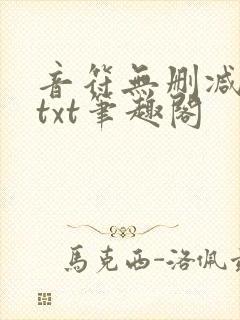 音符無刪減
txt筆趣閣
馬克西-洛佩